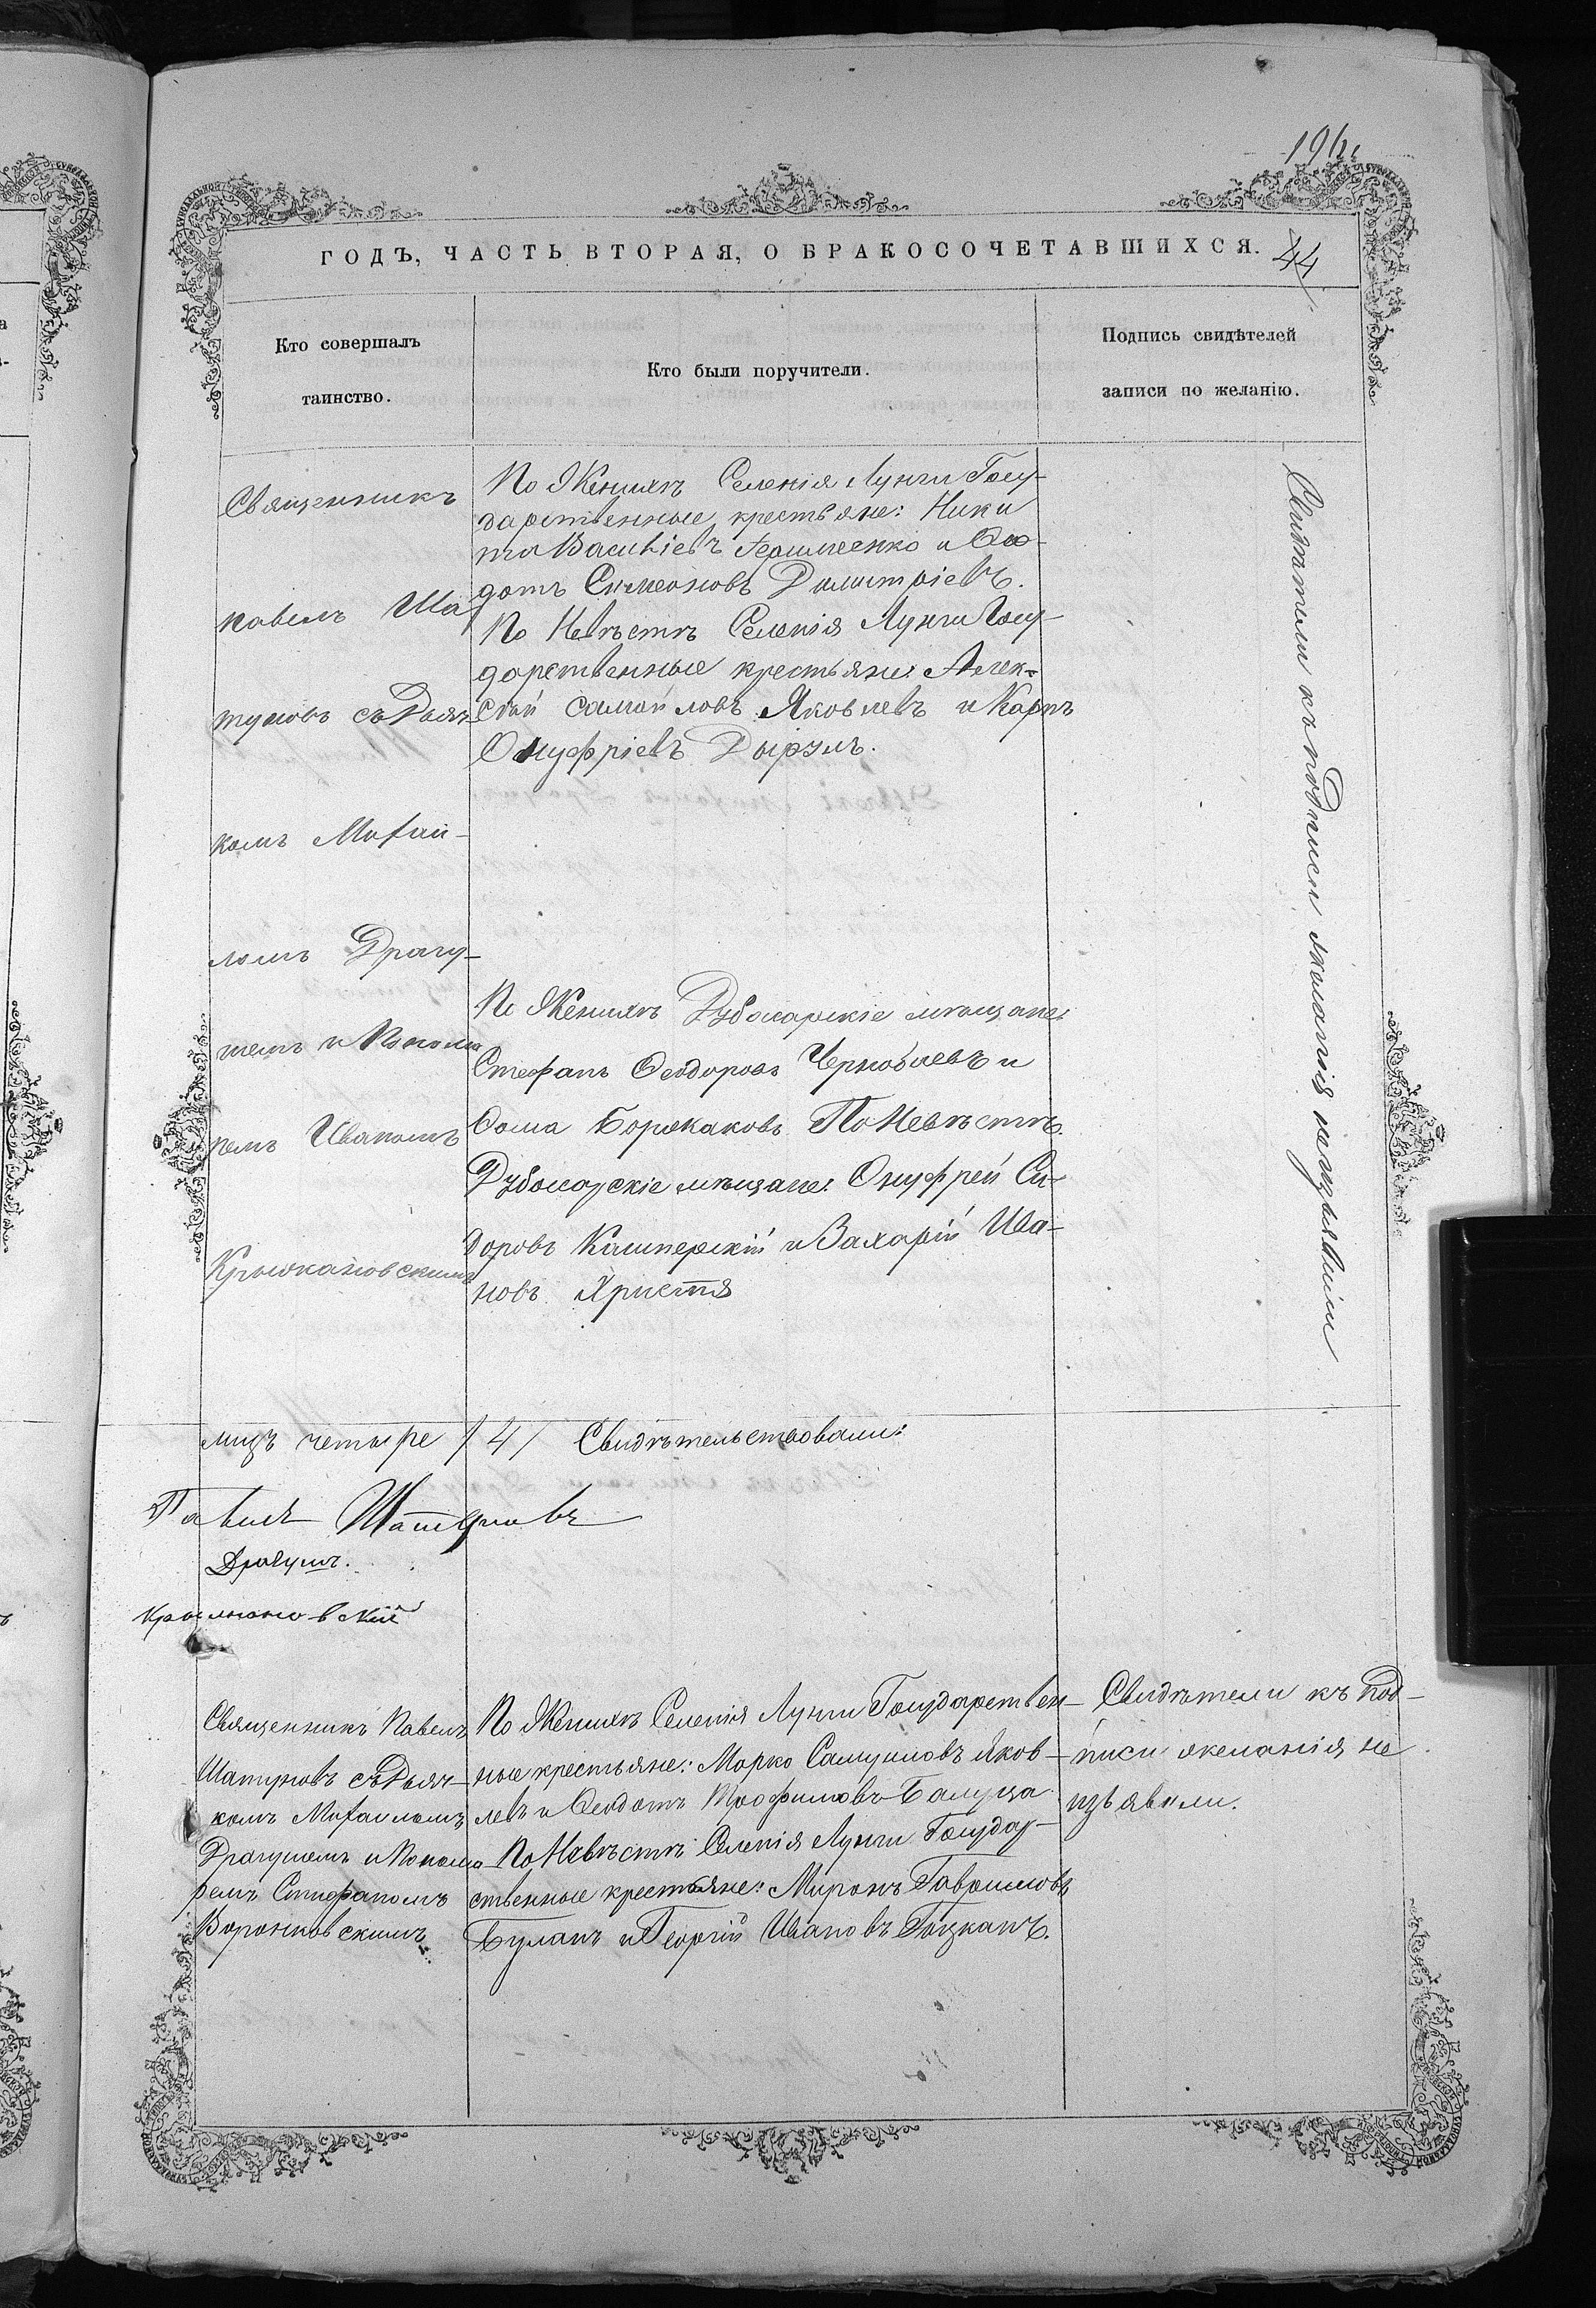 196
ГОДЪ, ЧАСТЬ ВТОРАЯ, О БРАКОСОЧЕТАВШИХСЯ.
44
Кто совершалъ
таинство.
Кто были поручители.
Подпись свидѣтелей
записи по желанію.
Священникъ
Павелъ Ша
туновъ съ Дьяч-
комъ Михаи-
ломъ Драгу-
темъ и Понома
ремъ Иваномъ
Крыжановскимъ
По Женихѣ Селенія Лунги Госу-
дарственные крестьяне: Ники
та Василіевъ и Ѳео-
дотъ Симеоновъ Димитріевъ.
По Невѣстѣ Селенія Лунги Госу-
дарственные крестьяне: Алек-
сѣй Самойловъ Яковлевъ и Карпъ
Онуфріевъ Дырулъ.
По Женихѣ Дубосарскіе мѣщане:
Стефанъ Ѳеодоровъ Чернобаевъ и
Ѳома Боржаковъ По Невѣстѣ
Дубосарскіе мѣщане: Онуфрей Си-
доровъ Кашперскій и Захарій Ива-
новъ Христя
Свидѣтели къ подписи желанія не изъявили
лицъ четыре /4/ Свидѣтельствовали:
Павелъ Шатуновъ
Драгушъ.
Крыжановскій
Священникъ Павелъ
Шатуновъ съ Дьяч-
комъ Михаиломъ
Драгушемъ и Понома
ремъ Стефаномъ
Воронковскимъ
По Женихѣ Селенія Лунги Государствен-
ные крестьяне: Марко Самуиловъ Яков-
левъ и Ѳеодотъ Трофимовъ Балуца
По Невѣстѣ Селенія Лунги Государ-
ственные крестьяне: Миронъ Гавриловъ
Буланъ и Георгій Ивановъ Гоцканъ.
Свидѣтели къ под-
писи желанія не
изъявили.